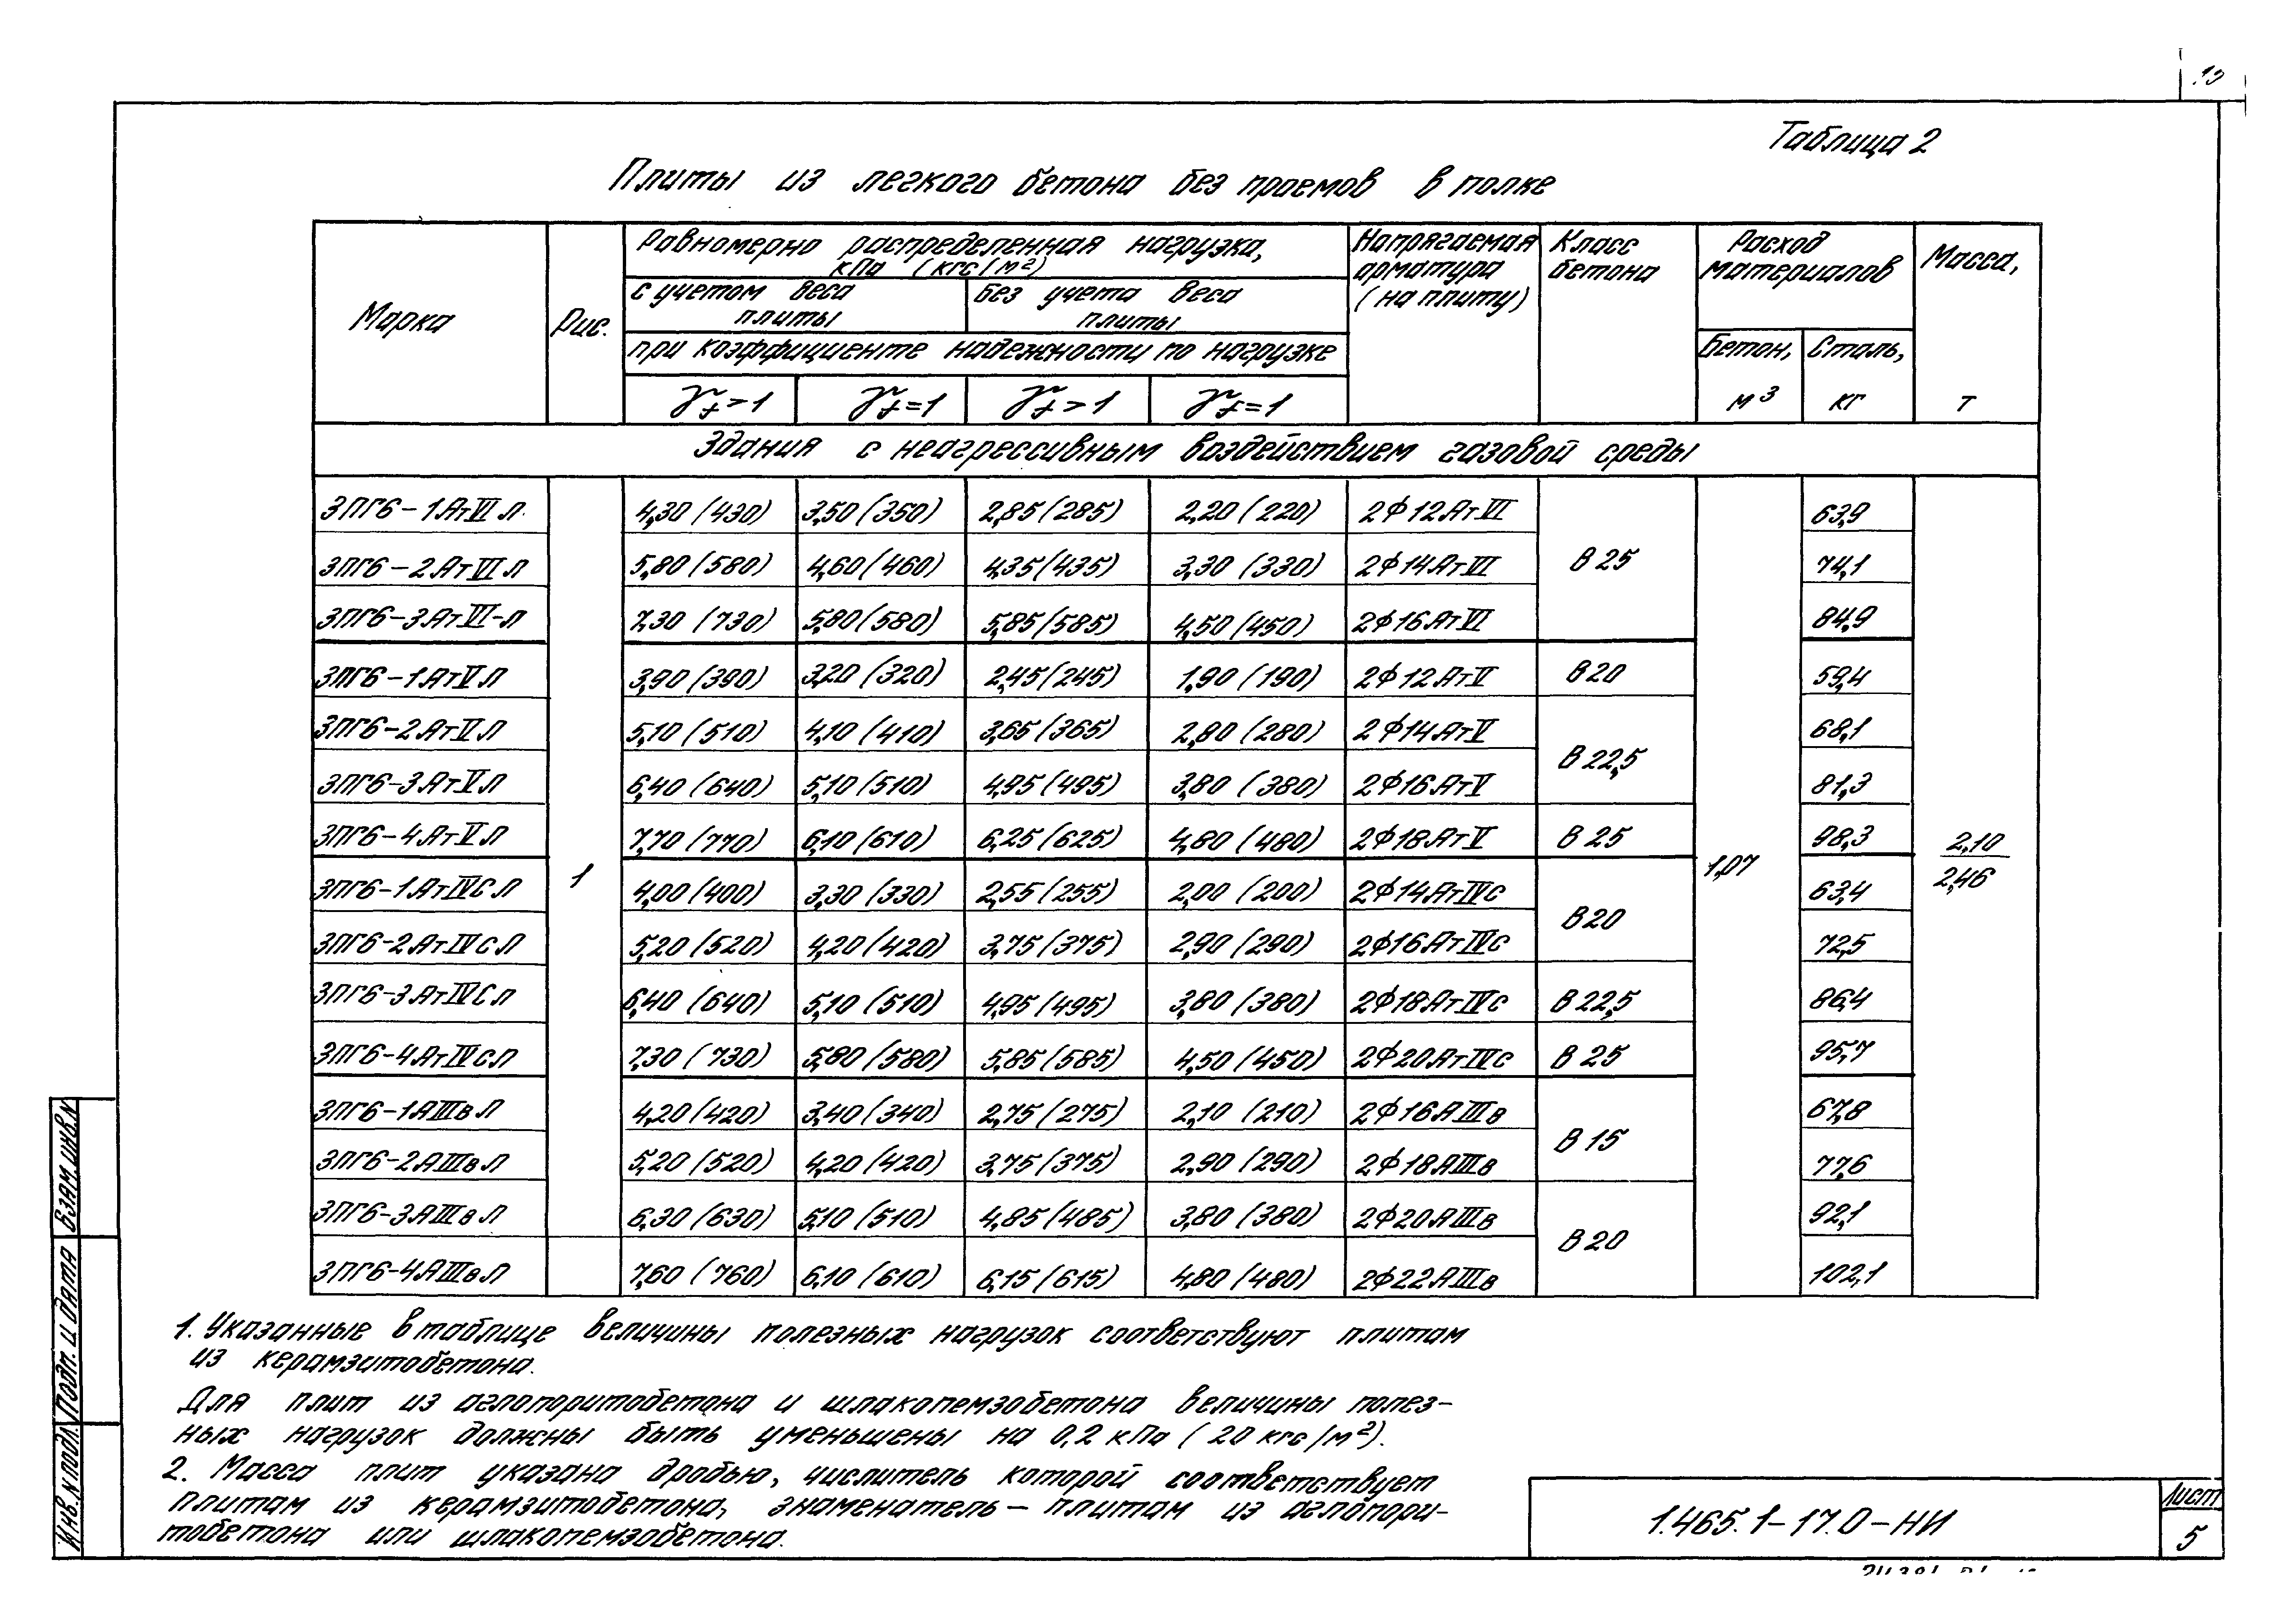 Таблица 2
Плиты из легкого бетона без проемов в полке
Марка
Рис.
Равномерно распределенная нагрузка,
кПа (кгс/м²)
с учетом веса
плиты
без учета веса
плиты
при коэффициенте надежности по нагрузке
γf>1 γf=1 γf>1 γf=1
Напрягаемая
арматура
(на плиту)
Класс
бетона
Расход
материалов
Бетон,
м³
Сталь,
кг
Масса,
т
Здания с неагрессивным воздействием газовой среды
3ПГ6-1АтVIл 4,30(430) 3,50(350) 2,85(285) 2,20(220) 2ф12АтVI 63,9
3ПГ6-2АтVIл 5,80(580) 4,60(460) 4,35(435) 3,30(330) 2ф14АтVI В25 74,1
3ПГ6-3АтVI-л 7,30(730) 5,80(580) 5,85(585) 4,50(450) 2ф16АтVI 84,9
3ПГ6-1АтVл 3,90(390) 3,20(320) 2,45(245) 1,90(190) 2ф12АтV В20 59,4
3ПГ6-2АтVл 5,10(510) 4,10(410) 3,65(365) 2,80(280) 2ф14АтV 68,1
В22,5
3ПГ6-3АтVл 6,40(640) 5,10(510) 4,95(495) 3,80(380) 2ф16АтV 81,3
3ПГ6-4АтVл 7,70(770) 6,10(610) 6,25(625) 4,80(480) 2ф18АтV В25 98,3
1 1,07 2,10
2,46
3ПГ6-1АтIVСл 4,00(400) 3,30(330) 2,55(255) 2,00(200) 2ф14АтIVс 63,4
В20
3ПГ6-2АтIVсл 5,20(520) 4,20(420) 3,75(375) 2,90(290) 2ф16АтIVс 72,5
3ПГ6-3АтIVСл 6,40(640) 5,10(510) 4,95(495) 3,80(380) 2ф18АтIVс В22,5 86,4
3ПГ6-4АтIVсл 7,30(730) 5,80(580) 5,85(585) 4,50(450) 2ф20АтIVс В25 95,7
3ПГ6-1АIIIвл 4,20(420) 3,40(340) 2,75(275) 2,10(210) 2ф16АIIIв 67,8
В15
3ПГ6-2АIIIвл 5,20(520) 4,20(420) 3,75(375) 2,90(290) 2ф18АIIIв 77,6
3ПГ6-3АIIIвл 6,30(630) 5,10(510) 4,85(485) 3,80(380) 2ф20АIIIв 92,1
В20
3ПГ6-4АIIIвл 7,60(760) 6,10(610) 6,15(615) 4,80(480) 2ф22АIIIв 102,1
1. Указанные в таблице величины полезных нагрузок соответствуют плитам
из керамзитобетона.
Для плит из аглопоритобетона и шлакопемзобетона величины полез-
ных нагрузок должны быть уменьшены на 0,2 кПа (20 кгс/м²).
2. Масса плит указана дробью, числитель которой соответствует
плитам из керамзитобетона, знаменатель – плитам из аглопори-
тобетона или шлакопемзобетона.
Взам.инв.N
Подп. и дата
Инв.N подл.
1.465.1-17.0-НИ
Лист
5